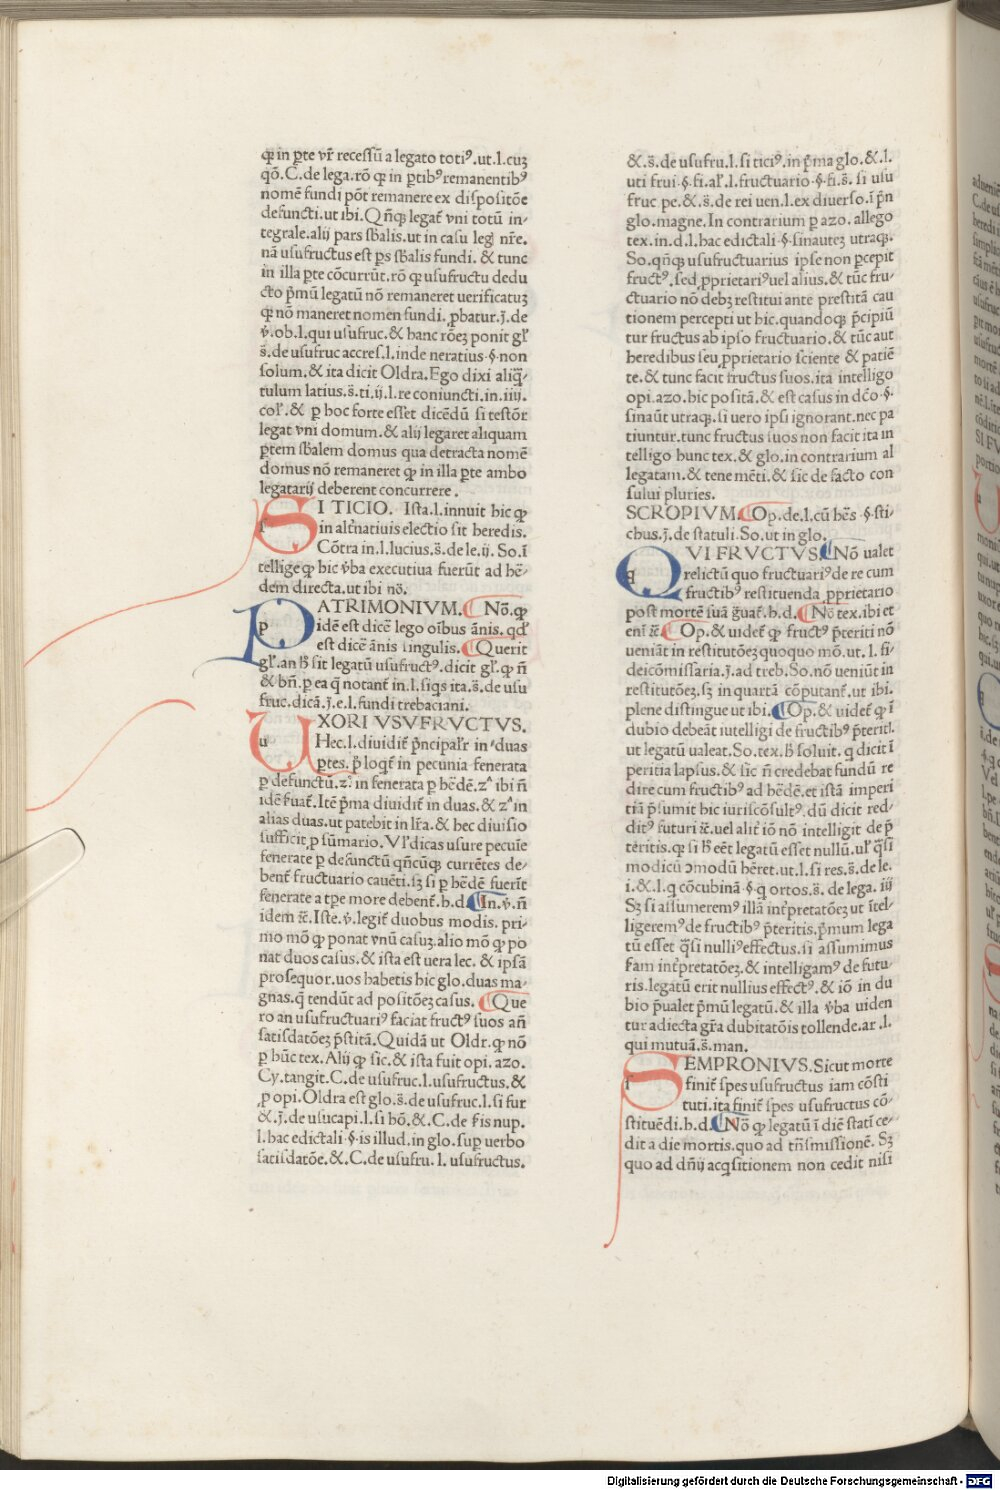 ꝙ in ꝑte vr̄ recessū a legato totiꝰ.ut.l.cuꝫ
qō.C.de lega.rō ꝙ in ꝑtibꝰ remanentibꝰ
nomē fundi pōt remanere ex dispositōe
defuncti.ut ibi.Qn̄qꝫ legat̄ vni totū in-
tegrale.alij pars sb̄alis.ut in casu leḡ nr̄e.
nā usufructus est ps sb̄alis fundi.& tunc
in illa ꝑte cōcurrūt.rō ꝙ usufructu dedu
cto p̄mū legatū nō remaneret uerificatuꝫ
ꝙ nō maneret nomen fundi.ꝓbatur.j̄.de
v̄.ob.l.qui usufruc.& hanc rōeꝫ ponit gl̄
s̄.de usufruc accres.l.inde neratius.§.non
solum.& ita dicit Oldra.Ego dixi aliq̄-
tulum latius.s̄.ti.ij.l.re coniuncti.in.iiij.
col̄.& ꝑ hoc forte esset dicēdū si testōr
legat vni domum.& alij legaret aliquam
ꝑtem sb̄alem domus qua detracta nomē
domus nō remaneret ꝙ in illa ꝑte ambo
legatarij deberent concurrere.
SI TICIO. Ista.l.innuit hic ꝙ
in alt̄natiuis electio sit heredis.
Cōtra in.l.lucius.s̄.de le.ij. So.ī
tellige ꝙ hic v̄ba executiua fuerūt ad hē-
dem directa.ut ibi nō.
PATRIMONIVM. Nō.ꝙ
idē est dicē lego oībus ānis. qd̄
est dicē ānis singulis. Querit
gl̄.an h̄ sit legatū usufructꝰ.dicit gl̄.ꝙ n̄
& bn̄.ꝑ ea q̄ notant̄ in.l.siqs ita.s̄.de usu
fruc.dicā.j̄.e.l.fundi trebaciani.
UXORI VSVFRVCTVS.
Hec.l.diuidit̄ p̄ncipal̄r in duas
ꝑtes.p̄ loqt̄ in pecunia fenerata
ꝑ defunctū.zᵃ in fenerata ꝑ hēdē.zᵃ ibi n̄
idē s̄uat̄.Itē p̄ma diuidit̄ in duas.& zᵃ in
alias duas.ut patebit in lr̄a.& hec diuisio
sufficit ꝓ sūmario.Vl̄ dicas usure pecuīe
fenerate ꝑ defunctū qn̄cūqꝫ currētes de-
bent̄ fructuario cauēti.sꝫ si ꝑ hēdē fuerīt
fenerate a tp̄e more debent̄.h.d. In.v̄.n̄
idem ⁊c̄.Iste.v̄.legit̄ duobus modis. pri-
mo mō ꝙ ponat vnū casuꝫ.alio mō ꝙ po
nat duos casus.& ista est uera lec. & ipsā
prosequor.uos habetis hic glo.duas ma-
gnas.q̄ tendūt ad positōeꝫ casus. Que
ro an usufructuariꝰ faciat fructꝰ suos an̄
satisdatōeꝫ p̄stitā.Quidā ut Oldr.ꝙ nō
ꝑ hūc tex.Alij ꝙ sic.& ista fuit opi.azo.
Cy.tangit.C.de usufruc.l.usufructus.&
ꝓ opi.Oldra est glo.s̄.de usufruc.l.si fur
&.j̄.de usucapi.l.si bō.&.C.de s̄is nup.
l.hac edictali.§.is illud.in glo.suꝑ uerbo
satisdatōe.&.C.de usufru.l. usufructus.
&.s̄.de usufru.l.si ticiꝰ.in p̄ma glo.&.l.
uti frui.§.fi.al̄.l.fructuario.§.fi.s̄. si usu
fruc pe.&.s̄.de rei uen.l.ex diuerso.ī p̄n
glo.magne.In contrarium ꝑ azo. allego
tex.in.d.l.hac edictali.§.sinauteꝫ utraqꝫ.
So.qn̄qꝫ usufructuarius ipse non ꝑcepit
fructꝰ.sed ꝓprietariꝰ uel alius.& tūc fru-
ctuario nō debꝫ restitui ante prestitā cau
tionem percepti ut hic.quandoqꝫ p̄cipiū
tur fructus ab ipso fructuario.& tūc aut
heredibus seu ꝓprietario sciente & patiē
te.& tunc facit fructus suos.ita intelligo
opi.azo.hic positā.& est casus in dc̄o.§.
sinaūt utraqꝫ.si uero ipsi ignorant.nec pa
tiuntur.tunc fructus suos non facit ita in
telligo hunc tex.& glo.in contrarium al
legatam.& tene mēti.& sic de facto con
sului pluries.
SCROPIVM. Op.de.l.cū hēs.§.sti-
chus.j̄.de statuli.So.ut in glo.
QVI FRVCTVS. Nō ualet
relictū quo fructuariꝰ de re cum
fructibꝰ restituenda ꝓprietario
post mortē suā ḡuat̄.h.d. Nō tex.ibi et
enī ⁊c̄. Op.& uidet̄ ꝙ fructꝰ p̄teriti nō
ueniāt in restitutōeꝫ quoquo mō.ut.l.fi-
deicōmissaria.j̄.ad treb.So.nō ueniūt in
restitutōeꝫ.sꝫ in quartā cōputant̄.ut ibi.
plene distingue ut ibi. Op.& uidet̄ ꝙ ī
dubio debeāt iutelligi de fructibꝰ p̄teriti.
ut legatū ualeat.So.tex.h̄ soluit.q dicit ī
peritia lapsus.& sic n̄ credebat fundū re
dire cum fructibꝰ ad hēdē.et istā imperi
tiā p̄sumit hic iuriscōsultꝰ.dū dicit red-
ditꝰ futuri ⁊c̄.uel alit̄ iō nō intelligit de p̄
teritis.ꝙ si h̄ eēt legatū esset nullū.ul̄ q̄si
modicū ↄmodū hēret.ut.l.si res.s̄.de le.
i.&.l.q cōcubinā.§.q ortos.s̄. de lega. iij
Sꝫ si assumeremꝰ illā int̄pretatōeꝫ ut ītel-
ligeremꝰ de fructibꝰ p̄teritis.p̄mum lega
tū esset q̄si nulliꝰ effectus.si assumimus
s̄am int̄pretatōeꝫ.& intelligamꝰ de futu-
ris.legatū erit nullius effectꝰ.& iō in du
bio p̄ualet p̄mū legatū.& illa v̄ba uiden
tur adiecta gr̄a dubitatōis tollende.ar.l.
qui mutuā.s̄.man.
SEMPRONIVS.Sicut morte
finit̄ spes usufructus iam cōsti
tuti.ita finit̄ spes usufructus cō-
stituēdi.h.d. Nō ꝙ legatū ī diē statī ce-
dit a die mortis.quo ad trn̄smissionē. Sꝫ
quo ad dn̄ij acqsitionem non cedit nisi
Digitalisierung gefördert durch die Deutsche Forschungsgemeinschaft - DFG